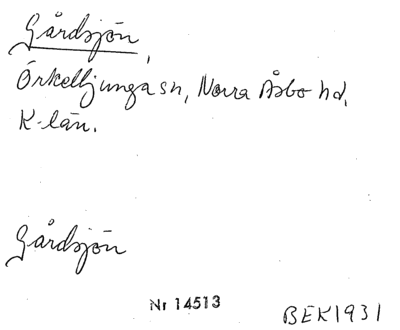 Gårdsjön,
Örkelljunga sn, Norra Åsbo hd,
K-län.
Gårdsjön
Nr 14513
BEK1931